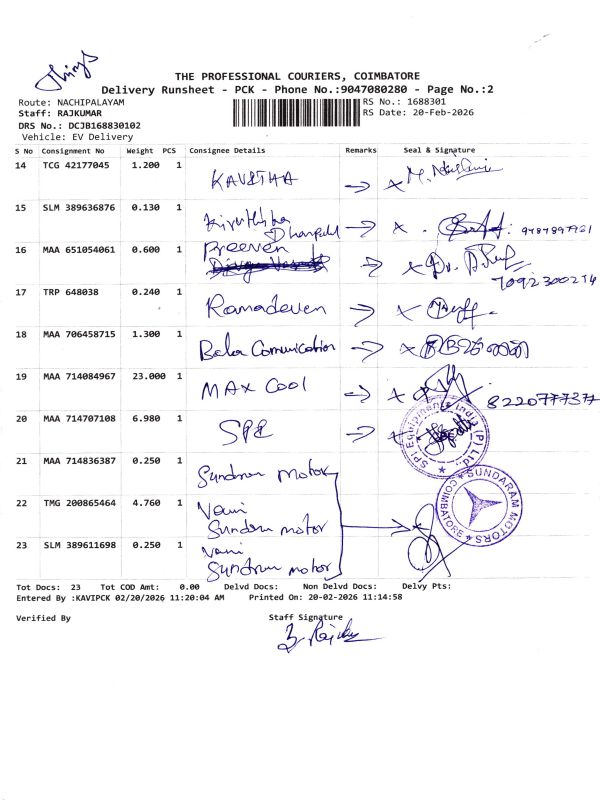 THE PROFESSIONAL COURIERS, COIMBATORE
Delivery Runsheet - PCK - Phone No.:9047080280 - Page No.:2
Route: NACHIPALAYAM
RS No.: 1688301
Staff: RAJKUMAR
RS Date: 20-Feb-2026
DRS No.: DCJB168830102
Vehicle: EV Delivery
S No Consignment No Weight PCS Consignee Details Remarks Seal & Signature
14 TCG 42177045 1.200 1 KAVITHA
15 SLM 389636876 0.130 1
16 MAA 651054061 0.600 1 Preeven
7092300274
17 TRP 648038 0.240 1 Ramadeven
18 MAA 706458715 1.300 1 Bala Comunication
19 MAA 714084967 23.000 1 MAX COOL
8220777377
20 MAA 714707108 6.980 1 SPE
SPI Equipments India (P) Ltd.
21 MAA 714836387 0.250 1 Sundram motor
SUNDARAM MOTORS
COIMBATORE
22 TMG 200865464 4.760 1 Vani
Sundram motor
23 SLM 389611698 0.250 1 Vani
Sundram motor
Tot Docs: 23 Tot COD Amt: 0.00 Delvd Docs: Non Delvd Docs: Delvy Pts:
Entered By :KAVIPCK 02/20/2026 11:20:04 AM Printed On: 20-02-2026 11:14:58
Verified By
Staff Signature